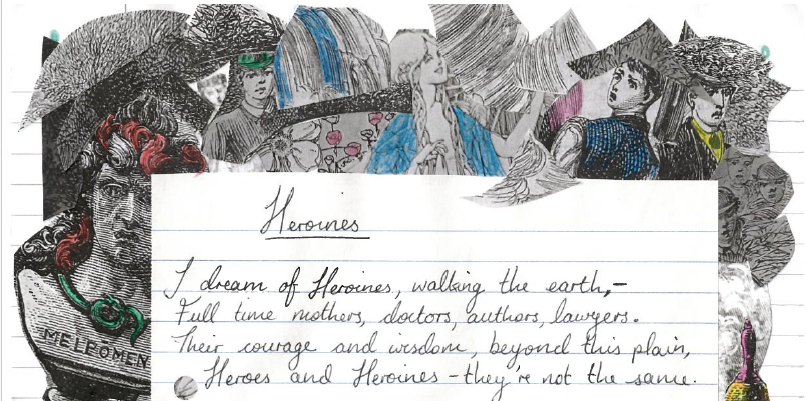 Heroines
I dream of Heroines, walking the earth,-
Full time mothers, doctors, authors, lawyers.
Their courage and wisdom, beyond this plain,
Heroes and Heroines - they're not the same.
MELPOMEN